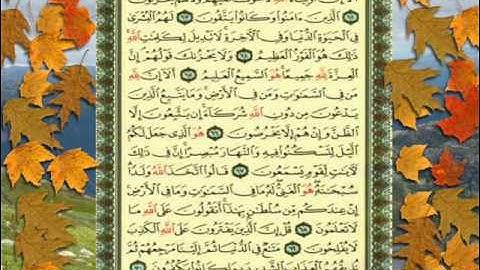 الَّذِينَ ءَامَنُوا وَكَانُوا يَتَّقُونَ ٦٣ لَهُمُ الْبُشْرَى
فِي الْحَيَوٰةِ الدُّنْيَا وَفِي الْآخِرَةِ لَا تَبْدِيلَ لِكَلِمَٰتِ اللَّهِ
ذَٰلِكَ هُوَ الْفَوْزُ الْعَظِيمُ ٦٤ وَلَا يَحْزُنكَ قَوْلُهُمْ إِنَّ
الْعِزَّةَ لِلَّهِ جَمِيعًا هُوَ السَّمِيعُ الْعَلِيمُ ٦٥ أَلَا إِنَّ لِلَّهِ
مَن فِي السَّمَٰوَٰتِ وَمَن فِي الْأَرْضِ وَمَا يَتَّبِعُ الَّذِينَ
يَدْعُونَ مِن دُونِ اللَّهِ شُرَكَاءَ إِن يَتَّبِعُونَ إِلَّا
الظَّنَّ وَإِنْ هُمْ إِلَّا يَخْرُصُونَ ٦٦ هُوَ الَّذِي جَعَلَ لَكُمُ
الَّيْلَ لِتَسْكُنُوا فِيهِ وَالنَّهَارَ مُبْصِرًا إِنَّ فِي ذَٰلِكَ
لَآيَٰتٍ لِّقَوْمٍ يَسْمَعُونَ ٦٧ قَالُوا اتَّخَذَ اللَّهُ وَلَدًا
سُبْحَٰنَهُ هُوَ الْغَنِيُّ لَهُ مَا فِي السَّمَٰوَٰتِ وَمَا فِي الْأَرْضِ
إِنْ عِندَكُم مِّن سُلْطَٰنٍ بِهَٰذَا أَتَقُولُونَ عَلَى اللَّهِ
مَا لَا تَعْلَمُونَ ٦٨ قُلْ إِنَّ الَّذِينَ يَفْتَرُونَ عَلَى اللَّهِ الْكَذِبَ
لَا يُفْلِحُونَ ٦٩ مَتَٰعٌ فِي الدُّنْيَا ثُمَّ إِلَيْنَا مَرْجِعُهُمْ ثُمَّ